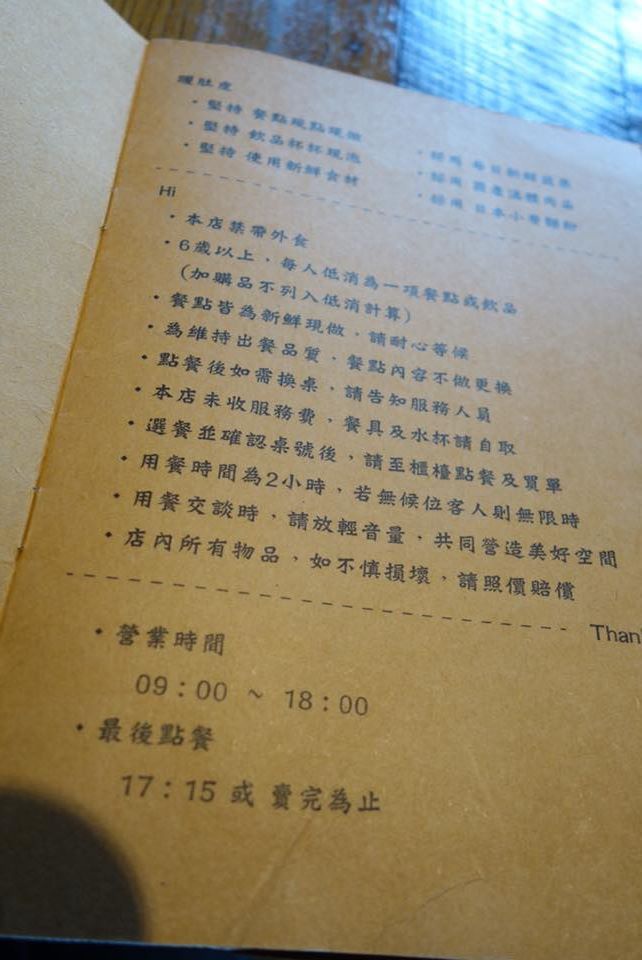 暖肚皮
・堅持 餐點現點現做
・堅持 飲品杯杯現泡
・堅持 使用新鮮食材
・採用 每日新鮮蔬果
・採用 國產溫體肉品
・採用 日本小麥麵粉
Hi
・本店禁帶外食
・6歲以上，每人低消為一項餐點或飲品
(加購品不列入低消計算)
・餐點皆為新鮮現做，請耐心等候
・為維持出餐品質，餐點內容不做更換
・點餐後如需換桌，請告知服務人員
・本店未收服務費，餐具及水杯請自取
・選餐並確認桌號後，請至櫃檯點餐及買單
・用餐時間為2小時，若無候位客人則無限時
・用餐交談時，請放輕音量，共同營造美好空間
・店內所有物品，如不慎損壞，請照價賠償
Than
・營業時間
09：00 ~ 18：00
・最後點餐
17：15 或 賣完為止